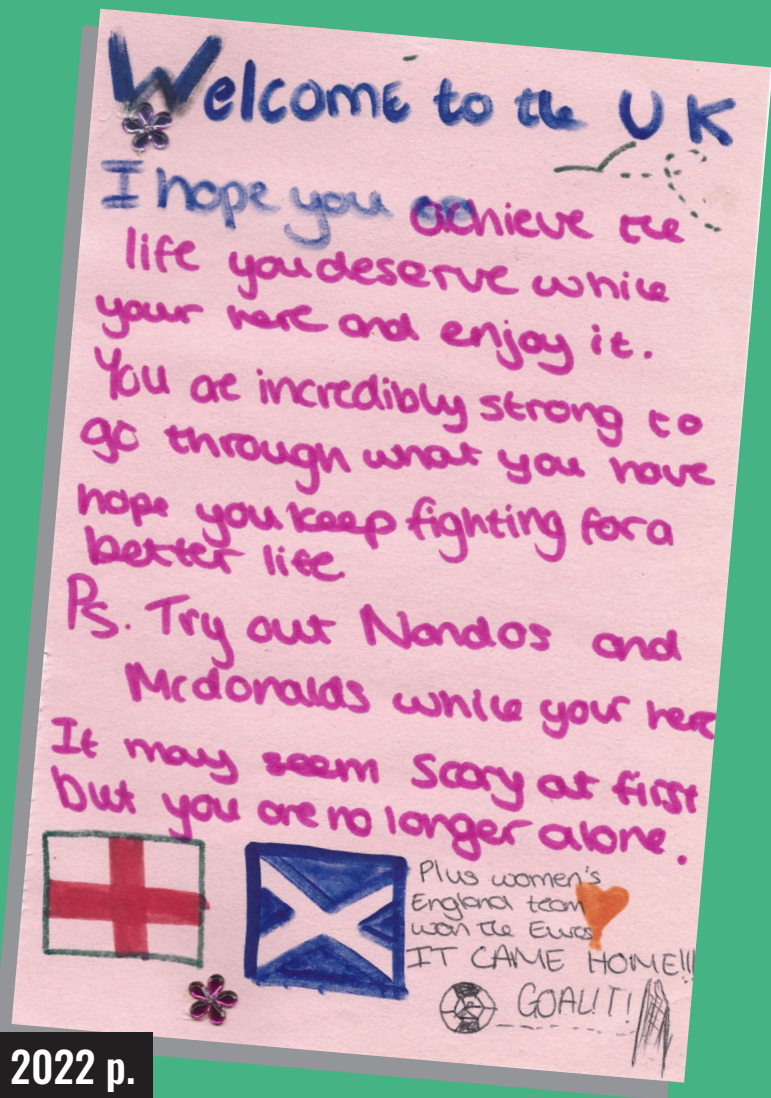 Welcome to the UK
I hope you achieve the
life you deserve while
your here and enjoy it.
You are incredibly strong to
go through what you have
hope you keep fighting for a
better life
Ps. Try out Nandos and
Mcdonalds while your here
It may seem scary at first
but you are no longer alone.
Plus women's
England team
won the Euros
IT CAME HOME!!!
GOAL!T!
2022 р.